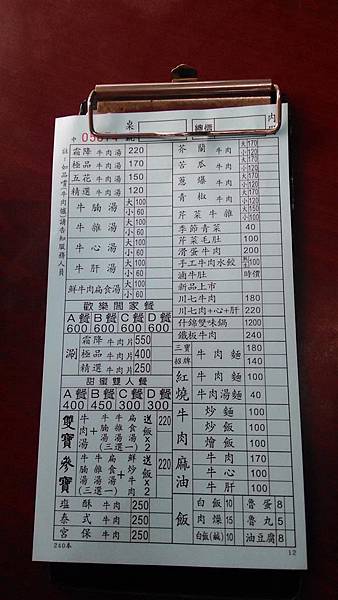 05871
桌號
總價
內用
註：如品嚐牛肉爐請告知服務人員
霜降牛肉湯 220
極品牛肉湯 170
五花牛肉湯 150
精選牛肉湯 120
牛腩湯 大100 小60
牛雜湯 大100 小60
牛心湯 大100 小60
牛肝湯 大100 小60
鮮牛肉扁食湯 大100 小60
歡樂闔家餐
A餐 B餐 C餐 D餐
600 600 600 600
涮
霜降牛肉片 550
極品牛肉片 400
精選牛肉片 250
甜蜜雙人餐
A餐 B餐 C餐 D餐
400 450 300 300
雙寶 牛肉湯+牛腩湯 牛雜湯 扁食湯(三選一) 送飯x2 220
參寶 牛腩湯 牛雜湯 扁食湯(三選一)+鮮炒牛肉 送飯x2 220
塩酥牛肉 250
泰式牛肉 250
宮保牛肉 250
240本
芥蘭牛肉 大170 小120
苦瓜牛肉 大170 小120
蔥爆牛肉 大170 小120
青椒牛肉 大170 小120
芹菜牛雜 大150 小100
季節青菜 40
芹菜毛肚 100
滑蛋牛肉 200
手工牛肉水餃 100
滷牛肚 時價
新品上市
川七牛肉 180
川七肉+心+肝 220
什錦雙味鍋 1200
鐵板牛肉 240
紅燒
三寶 牛肉麵 180
招牌 牛肉麵 140
牛肉麵 100
牛肉湯麵 40
牛肉
炒麵 100
炒飯 100
燴飯 100
麻油
牛肉 170
牛心 100
牛肝 100
飯
白飯 10 魯蛋 8
肉燥 15 魯丸 5
白飯(鹹) 10 油豆腐 8
12